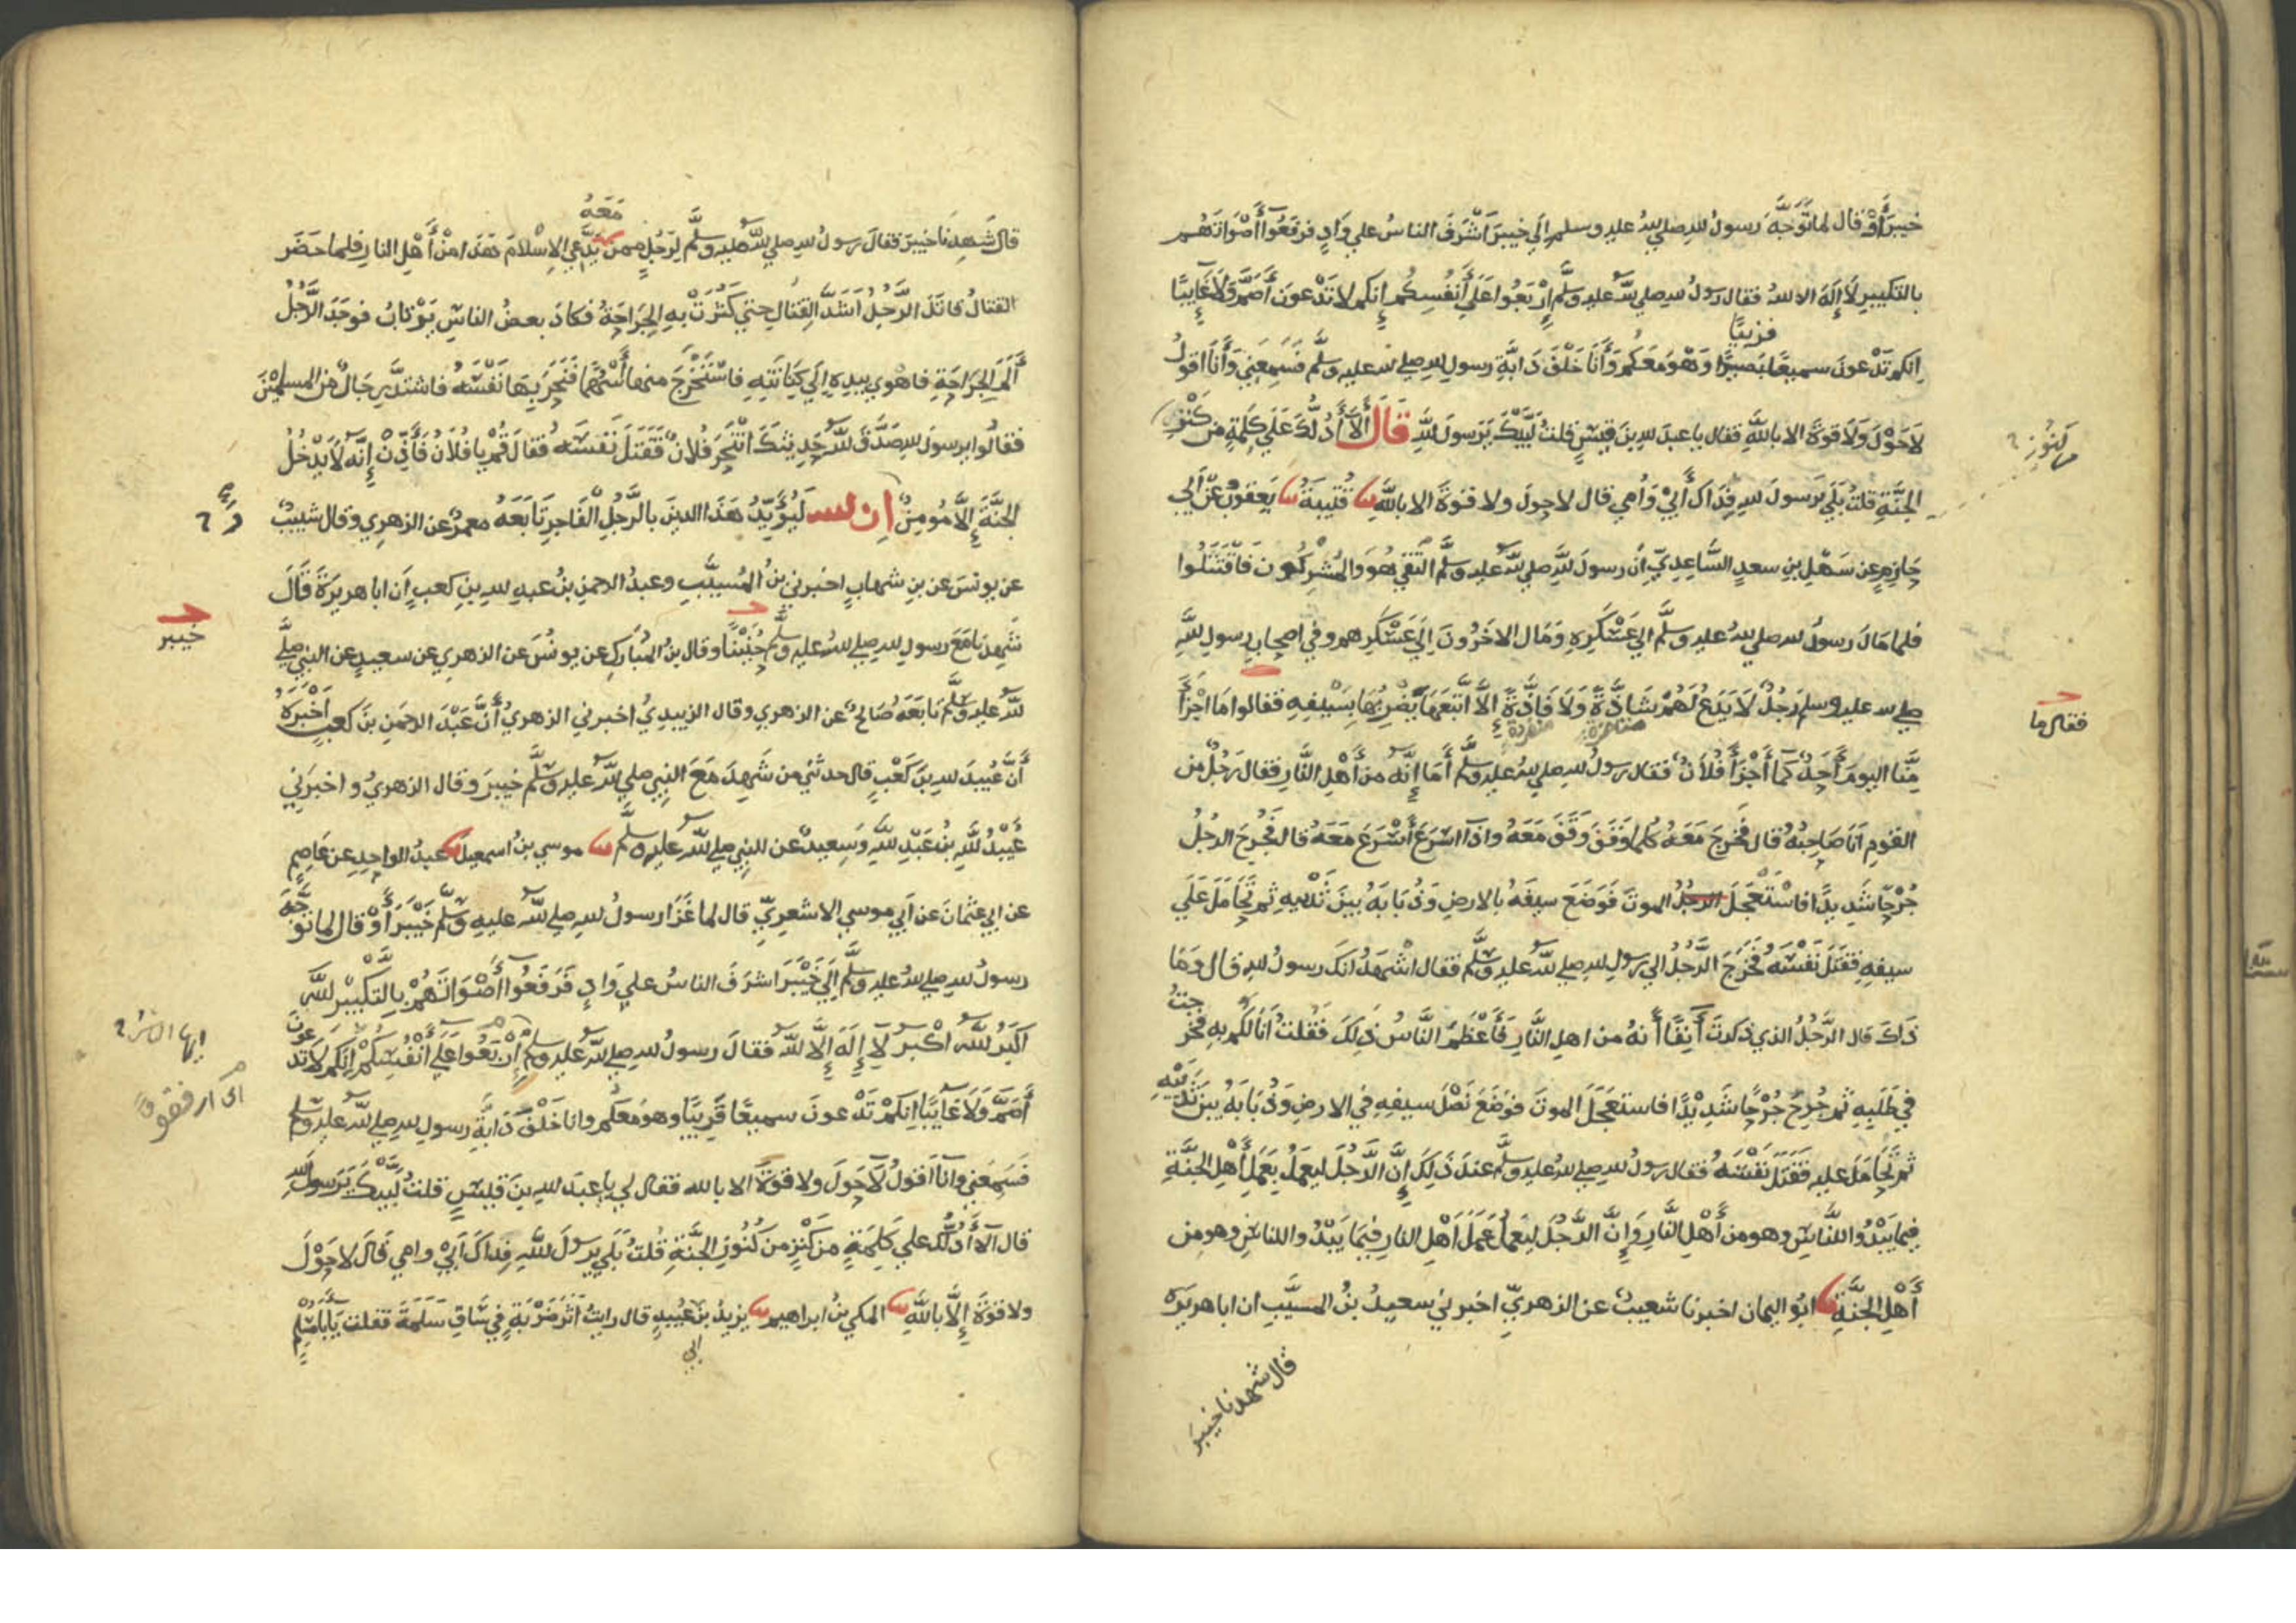 خيبر أو قال لما توجه رسول الله صلى الله عليه وسلم إلى خيبر أشرف الناس على واد فرفعوا أصواتهم
بالتكبير لا إله الا الله فقال رسول الله صلى الله عليه وسلم إربعوا على أنفسكم إنكم لا تدعون أصم ولا غايبا
قريبا
انكم تدعون سميعا بصيرا وهو معكم وأنا خلف دابة رسول الله صلى الله عليه وسلم فسمعني وأنا أقول
لا حول ولا قوة الا بالله فقال يا عبد الله بن قيس قلت لبيك يرسول الله قال ألا أدلك على كلمة من كنز
من كنوز
الجنة قلت بلى يرسول الله فداك أبي وأمي قال لا حول ولا قوة الا بالله نا قتيبة نا يعقوب عن أبي
حازم عن سهل بن سعد الساعدي أن رسول الله صلى الله عليه وسلم التقى هو والمشركون فاقتتلوا
فلما مال رسول الله صلى الله عليه وسلم الى عسكره ومال الاخرون إلى عسكرهم وفي اصحاب رسول الله
صلى الله عليه وسلم رجل لا يدع لهم شاذة ولا فاذة إلا اتبعها يضربها بسيفه فقالوا ما اجزأ
فقال ما
منا اليوم أحد كما أجزأ فلان فقال رسول الله صلى الله عليه وسلم أما إنه من أهل النار فقال رجل من
القوم أنا صاحبه قال فخرج معه كلما وقف وقف معه واذا اسرع أسرع معه قال فجرح الرجل
جرحا شديدا فاستعجل الرجل الموت فوضع سيفه بالارض وذبابه بين ثدييه ثم تحامل على
سيفه فقتل نفسه فخرج الرجل الى رسول الله صلى الله عليه وسلم فقال اشهد انك رسول الله قال وما
ذاك قال الرجل الذي ذكرت آنفا أنه من اهل النار فأعظم الناس ذلك فقلت أنا لكم به فخرجت
في طلبه ثم جرح جرحا شديدا فاستعجل الموت فوضع نصل سيفه في الارض وذبابه بين ثدييه
ثم تحامل عليه فقتل نفسه فقال رسول الله صلى الله عليه وسلم عند ذلك إن الرجل ليعمل بعمل أهل الجنة
فيما يبدوا للناس وهو من أهل النار وإن الرجل ليعمل عمل أهل النار فيما يبدوا للناس وهو من
أهل الجنة نا ابو اليمان اخبرنا شعيب عن الزهري اخبرني سعيد بن المسيب ان ابا هريرة
قال شهدنا خيبر
معه
قال شهدنا خيبر فقال رسول الله صلى الله عليه وسلم لرجل ممن يدعي الاسلام هذا من أهل النار فلما حضر
القتال قاتل الرجل اشد القتال حتى كثرت به الجراحة فكاد بعض الناس يرتاب فوجد الرجل
ألم الجراحة فاهوى بيده إلى كنانته فاستخرج منها أسهما فنحر بها نفسه فاشتد رجال من المسلمين
فقالوا يرسول الله صدق الله حديثك انتحر فلان فقتل نفسه فقال قم يا فلان فأذن إنه لا يدخل
الجنة إلا مومن إن الله ليؤيد هذا الدين بالرجل الفاجر تابعه معمر عن الزهري وقال شبيب
عن يونس عن بن شهاب اخبرني بن المسيب وعبد الرحمن بن عبد الله بن كعب أن ابا هريرة قال
شهدنا مع رسول الله صلى الله عليه وسلم حنينا وقال بن المبارك عن يونس عن الزهري عن سعيد عن النبي صلى
خيبر
الله عليه وسلم تابعه صالح عن الزهري وقال الزبيدي اخبرني الزهري أن عبد الرحمن بن كعب أخبره
أن عبيد الله بن كعب قال حدثني من شهد مع النبي صلى الله عليه وسلم خيبر وقال الزهري واخبرني
عبيد الله بن عبد الله وسعيد عن النبي صلى الله عليه وسلم نا موسى بن اسمعيل نا عبد الواحد عن عاصم
عن ابي عثمان عن أبي موسى الاشعري قال لما غزا رسول الله صلى الله عليه وسلم خيبر أو قال لما توجه
رسول الله صلى الله عليه وسلم إلى خيبر اشرف الناس على واد فرفعوا أصواتهم بالتكبير الله
اكبر الله اكبر لا إله إلا الله فقال رسول الله صلى الله عليه وسلم إربعوا على أنفسكم إنكم لا تدعون
ايها الناس
اى ارفقوا
أصم ولا غايبا إنكم تدعون سميعا قريبا وهو معكم وانا خلف دابة رسول الله صلى الله عليه وسلم
فسمعني وأنا أقول لا حول ولا قوة الا بالله فقال لي يا عبد الله بن قيس قلت لبيك يرسول الله
قال ألا أدلك على كلمة من كنز من كنوز الجنة قلت بلى يرسول الله فداك أبي وامي قال لا حول
ولا قوة إلا بالله نا المكي بن ابراهيم نا يزيد بن عبيد قال رايت أثر ضربة في ساق سلمة فقلت يابا مسلم
ابي